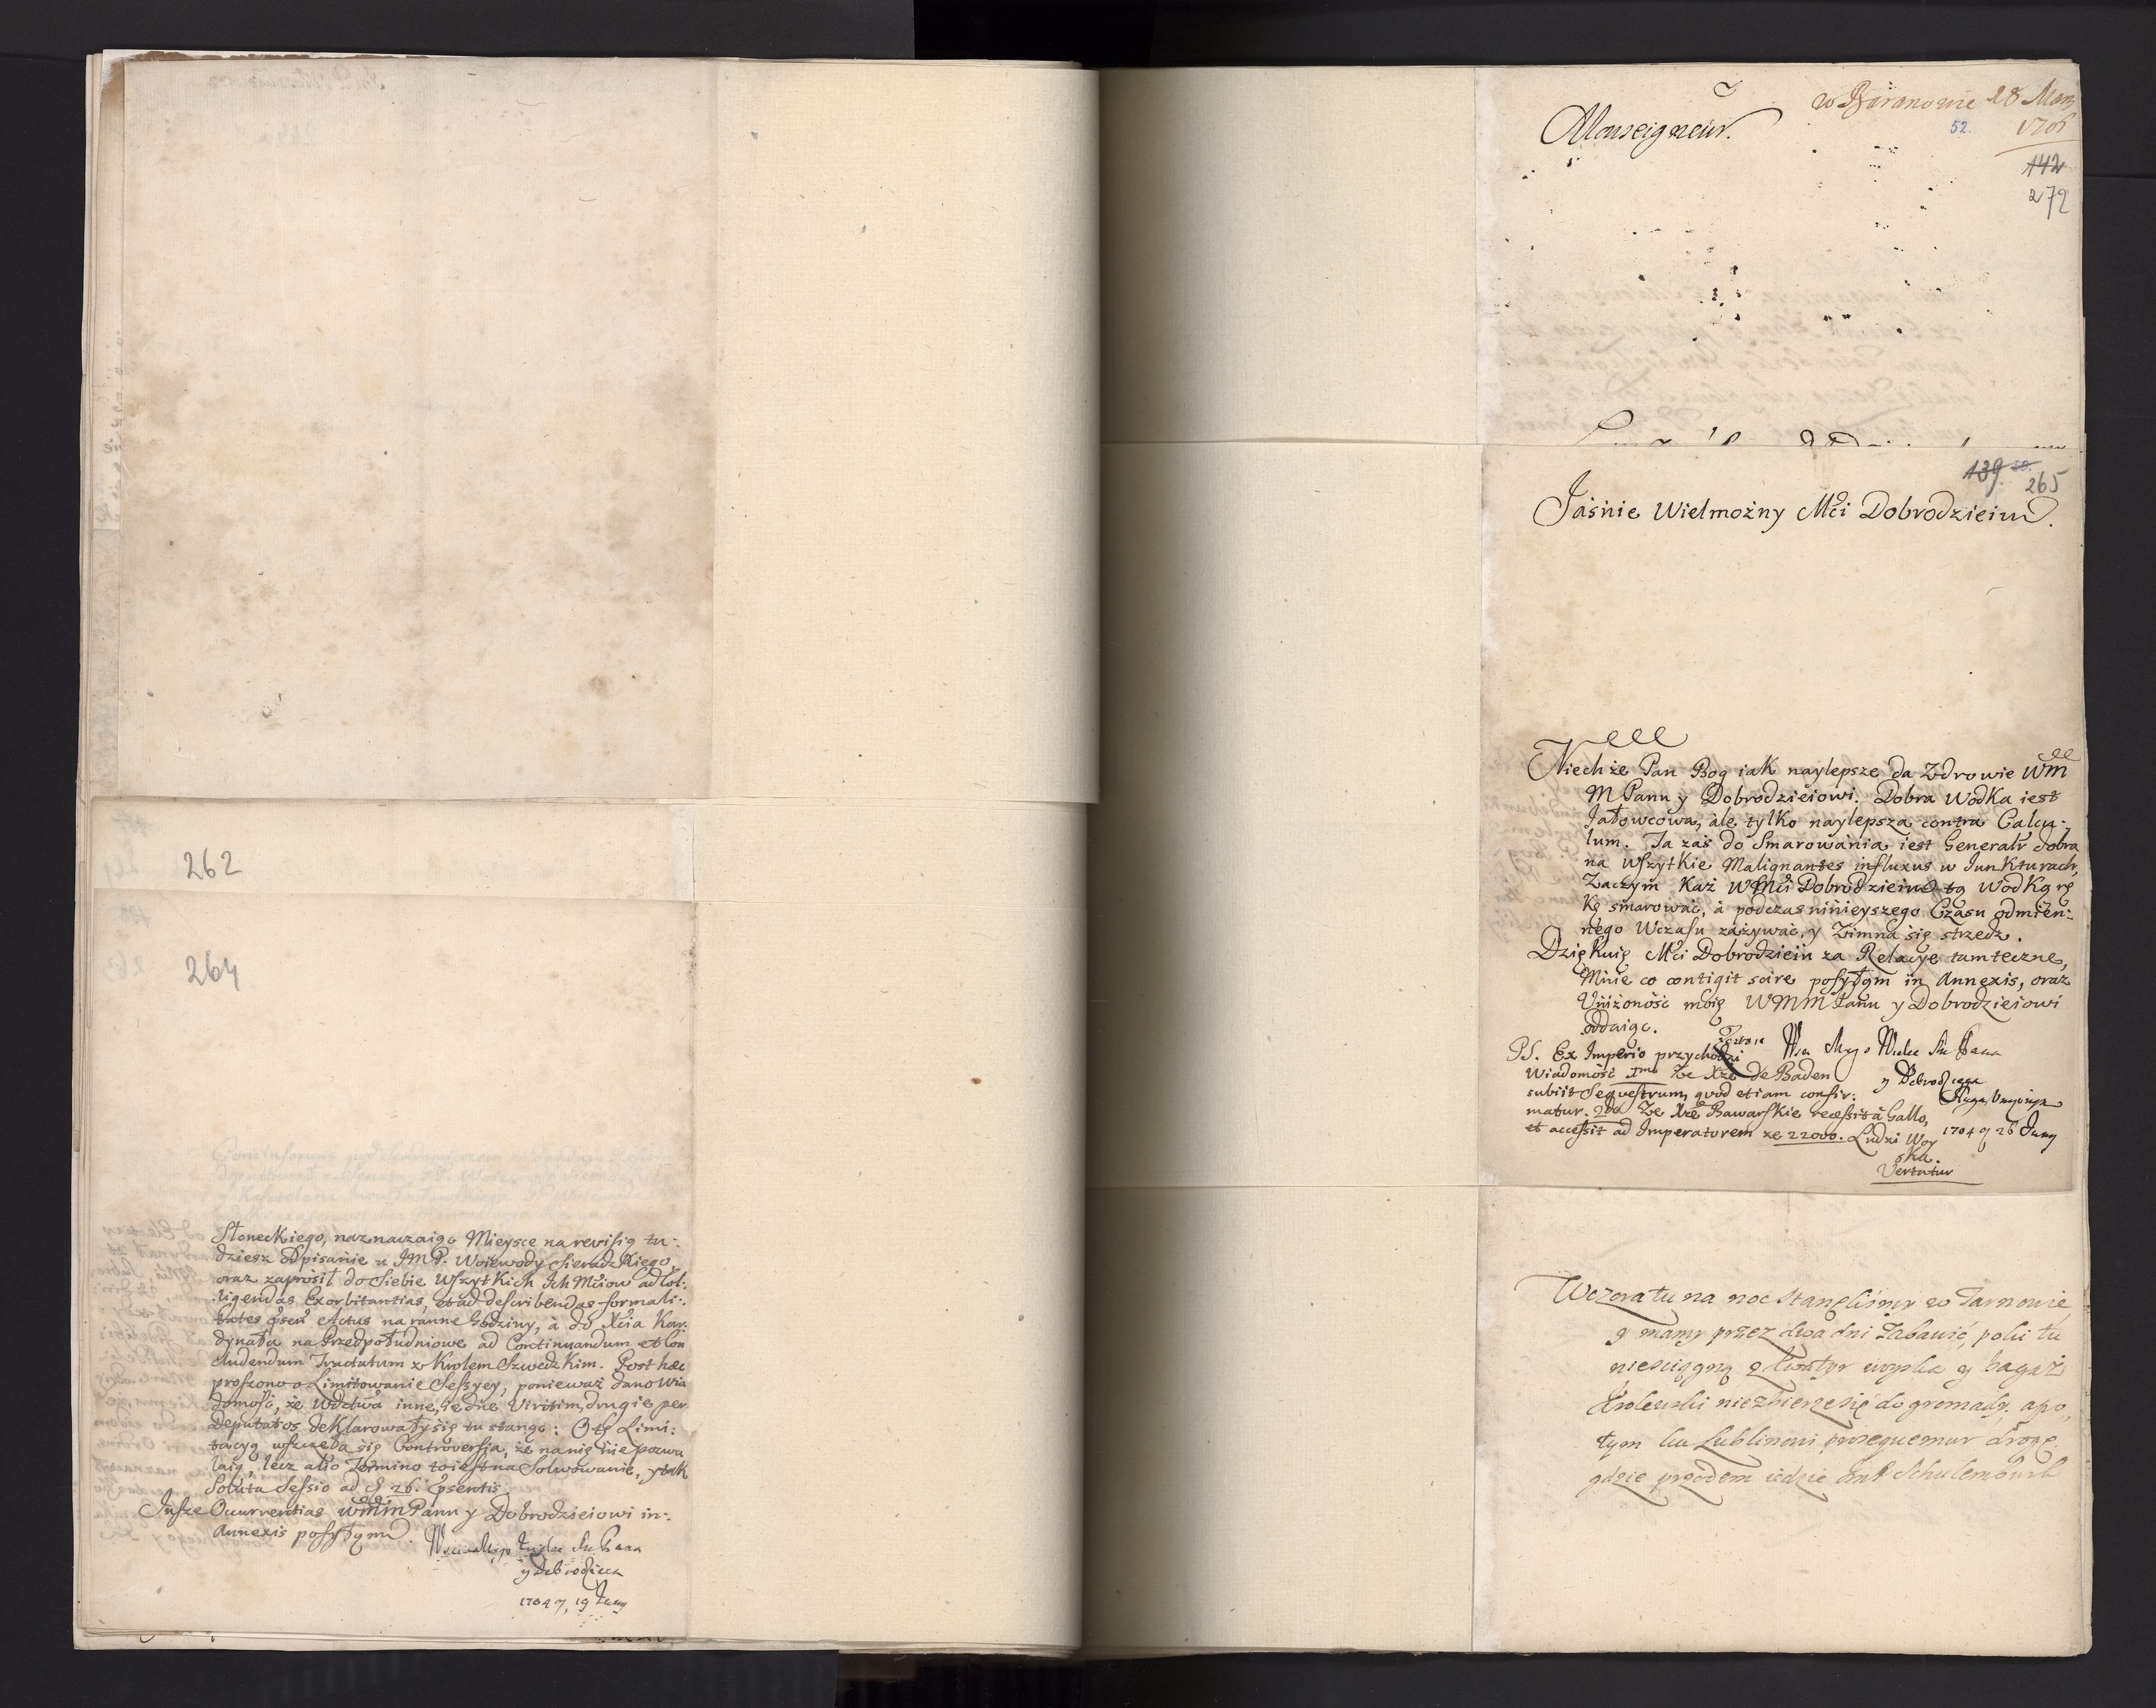 262
264
Słoneckiego, naznaczaiąc Mieysce na revisią tu:
dziesz Opisanie u JMP. Woiewody Sieradzkiego,
oraz zaprosił do Siebie wszytkich Ich Mciow ad Col:
ligendas Exorbitantias, et ad describendas formali:
Actus na ranne Godziny, à do Xcia Kar:
dynała na Przedpołudniowe ad Continuandum et Con
cludendum Tractatum z Krolem Szwedzkim. Post hæc
proszono o Limitowanie Sessyey, ponieważ dano Wia
domość, że Wdctwa inne, iedne Viritim, drugie per
Deputatos deklarowały się tu stanąc: O tę Limi:
tacyą wszczeła się Controversja, że na nię nie pozwa
laią, lecz alio Termino to iest na Solwowanie, y tak
Soluta Sessio ad d 26. præsentis.
Insze Ocurrentias WMMPanu y Dobrodzieiowi in:
Annexis posyłym
Pana
y Dobrodzieia
1704 19 Juny
w Baranowie 28 Mar
52.
1706
Monseigneur.
142
272
139
265
Jaśnie Wielmożny Mci Dobrodzieiu.
Niechże Pan Bog iak naylepsze da Zdrowie WM
MPanu y Dobrodzieiowi. Dobra Wodka iest
Jałowcowa, ale tylko naylepsza contra Calcu:
lum. Ta zaś do Smarowania iest Generalr dobra
na wszytkie Malignantes influxus w Junkturach,
Zaczym każ WMci Dobrodzieiu tą Wodką rę
kę smarować, à podczas ninieyszego Czasu odmien:
nego Wczasu zażywać, y Zimna się strzedz.
Dziękuię Mci Dobrodzieiu za Relacye tamteczne,
Mnie co contigit scire posyłąm in Annexis, oraz
Uniżoność moię WMMPanu y Dobrodzieiowi
oddaiąc.
PS. Ex Imperio przychodzi
Wiadomość 1mo Ze Xże de Baden
subiit Sequestrum, quod etiam confir:
matur. 2do Ze Xże Bawarskie recessit à Gallo,
et accessit ad Imperatorem ze 22000. Ludzi Woy
ska.
Vertatur
Pana
y Dobrodzieia
Sługa
1704 26 Juny
Wczora tu na noc stanęliśmy w Tarnowie
y mamy przez dwa dni Zabawić, poki tu
niesciągną woyska y bagaż
Krolewski niezbierze się do gromady, apo,
tym ku Lublinowi prosequemur drogę
gdzie przodem iedzie Schulemburk